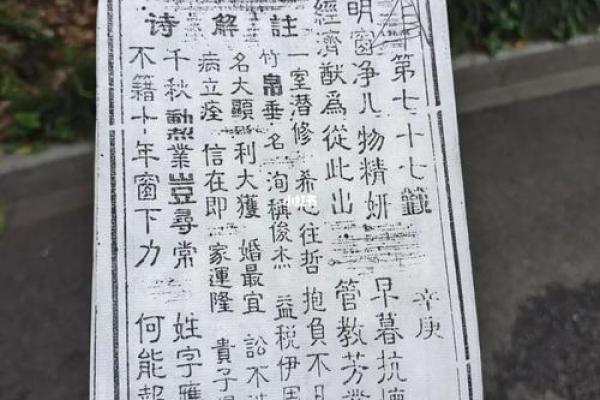 第七十七籤 辛庚
明窗净几物精妍 早暮抗
經濟猷爲從此出 管教芳
註
一室潜修 希心往哲 抱負不
竹帛垂名 洵稱俊杰 益
解
名大顯 利大獲 婚最宜 訟不
病立痊 信在即 家運隆 貴子
诗
千秋勳業豈尋常 姓字應
不籍十年窗下力 何能